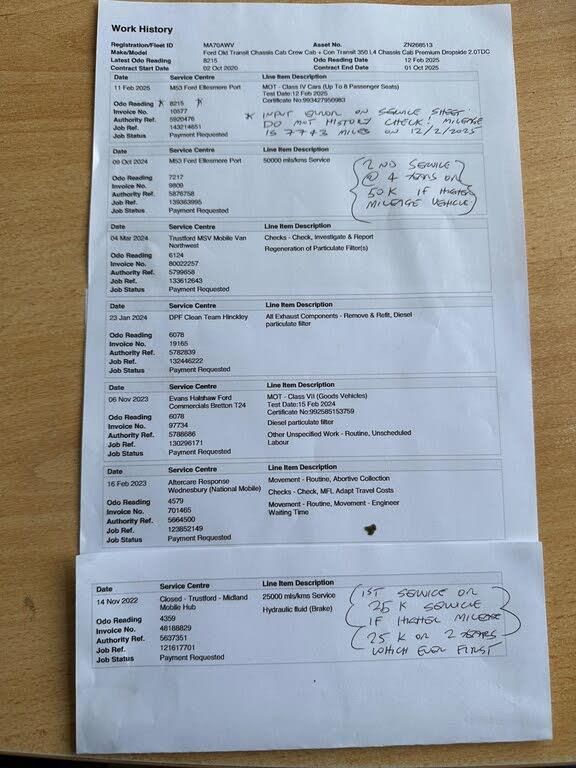 Work History
Registration/Fleet ID MA70AWV Asset No. ZN268513
Make/Model Ford Old Transit Chassis Cab Crew Cab + Con Transit 350 L4 Chassis Cab Premium Dropside 2.0TDC
Latest Odo Reading 8215 Odo Reading Date 12 Feb 2025
Contract Start Date 02 Oct 2020 Contract End Date 01 Oct 2025
Date Service Centre Line Item Description
11 Feb 2025 M53 Ford Ellesmere Port MOT - Class IV Cars (Up To 8 Passenger Seats)
Test Date:12 Feb 2025
Odo Reading * 8215 * Certificate No:993427950983
Invoice No. 10577 * INPUT ERROR ON SERVICE SHEET
Authority Ref. 5920476 DO MOT HISTORY CHECK! MILEAGE
Job Ref. 143214651 IS 7743 MILES ON 12/2/2025
Job Status Payment Requested
Date Service Centre Line Item Description
09 Oct 2024 M53 Ford Ellesmere Port 50000 mls/kms Service
2ND SERVICE
Odo Reading 7217 @ 4 YEARS OR
Invoice No. 9809 50K IF HIGHER
Authority Ref. 5876758 MILEAGE VEHICLE
Job Ref. 139363995
Job Status Payment Requested
Date Service Centre Line Item Description
04 Mar 2024 Trustford MSV Mobile Van Checks - Check, Investigate & Report
Northwest Regeneration of Particulate Filter(s)
Odo Reading 6124
Invoice No. 80022257
Authority Ref. 5799658
Job Ref. 133612643
Job Status Payment Requested
Date Service Centre Line Item Description
23 Jan 2024 DPF Clean Team Hinckley All Exhaust Components - Remove & Refit, Diesel
particulate filter
Odo Reading 6078
Invoice No. 19165
Authority Ref. 5782839
Job Ref. 132446222
Job Status Payment Requested
Date Service Centre Line Item Description
06 Nov 2023 Evans Halshaw Ford MOT - Class VII (Goods Vehicles)
Commercials Bretton T24 Test Date:15 Feb 2024
Odo Reading 6078 Certificate No:992585153759
Invoice No. 97734 Diesel particulate filter
Authority Ref. 5788686 Other Unspecified Work - Routine, Unscheduled
Job Ref. 130296171 Labour
Job Status Payment Requested
Date Service Centre Line Item Description
16 Feb 2023 Aftercare Response Movement - Routine, Abortive Collection
Wednesbury (National Mobile) Checks - Check, MFL Adapt Travel Costs
Odo Reading 4579 Movement - Routine, Movement - Engineer
Invoice No. 701465 Waiting Time
Authority Ref. 5664500
Job Ref. 123852149
Job Status Payment Requested
Date Service Centre Line Item Description
14 Nov 2022 Closed - Trustford - Midland 25000 mls/kms Service
Mobile Hub Hydraulic fluid (Brake)
1ST SERVICE OR
Odo Reading 4359 25K SERVICE
Invoice No. 48188829 IF HIGHER MILEAGE
Authority Ref. 5637351 25K OR 2 YEARS
Job Ref. 121617701 WHICH EVER FIRST
Job Status Payment Requested